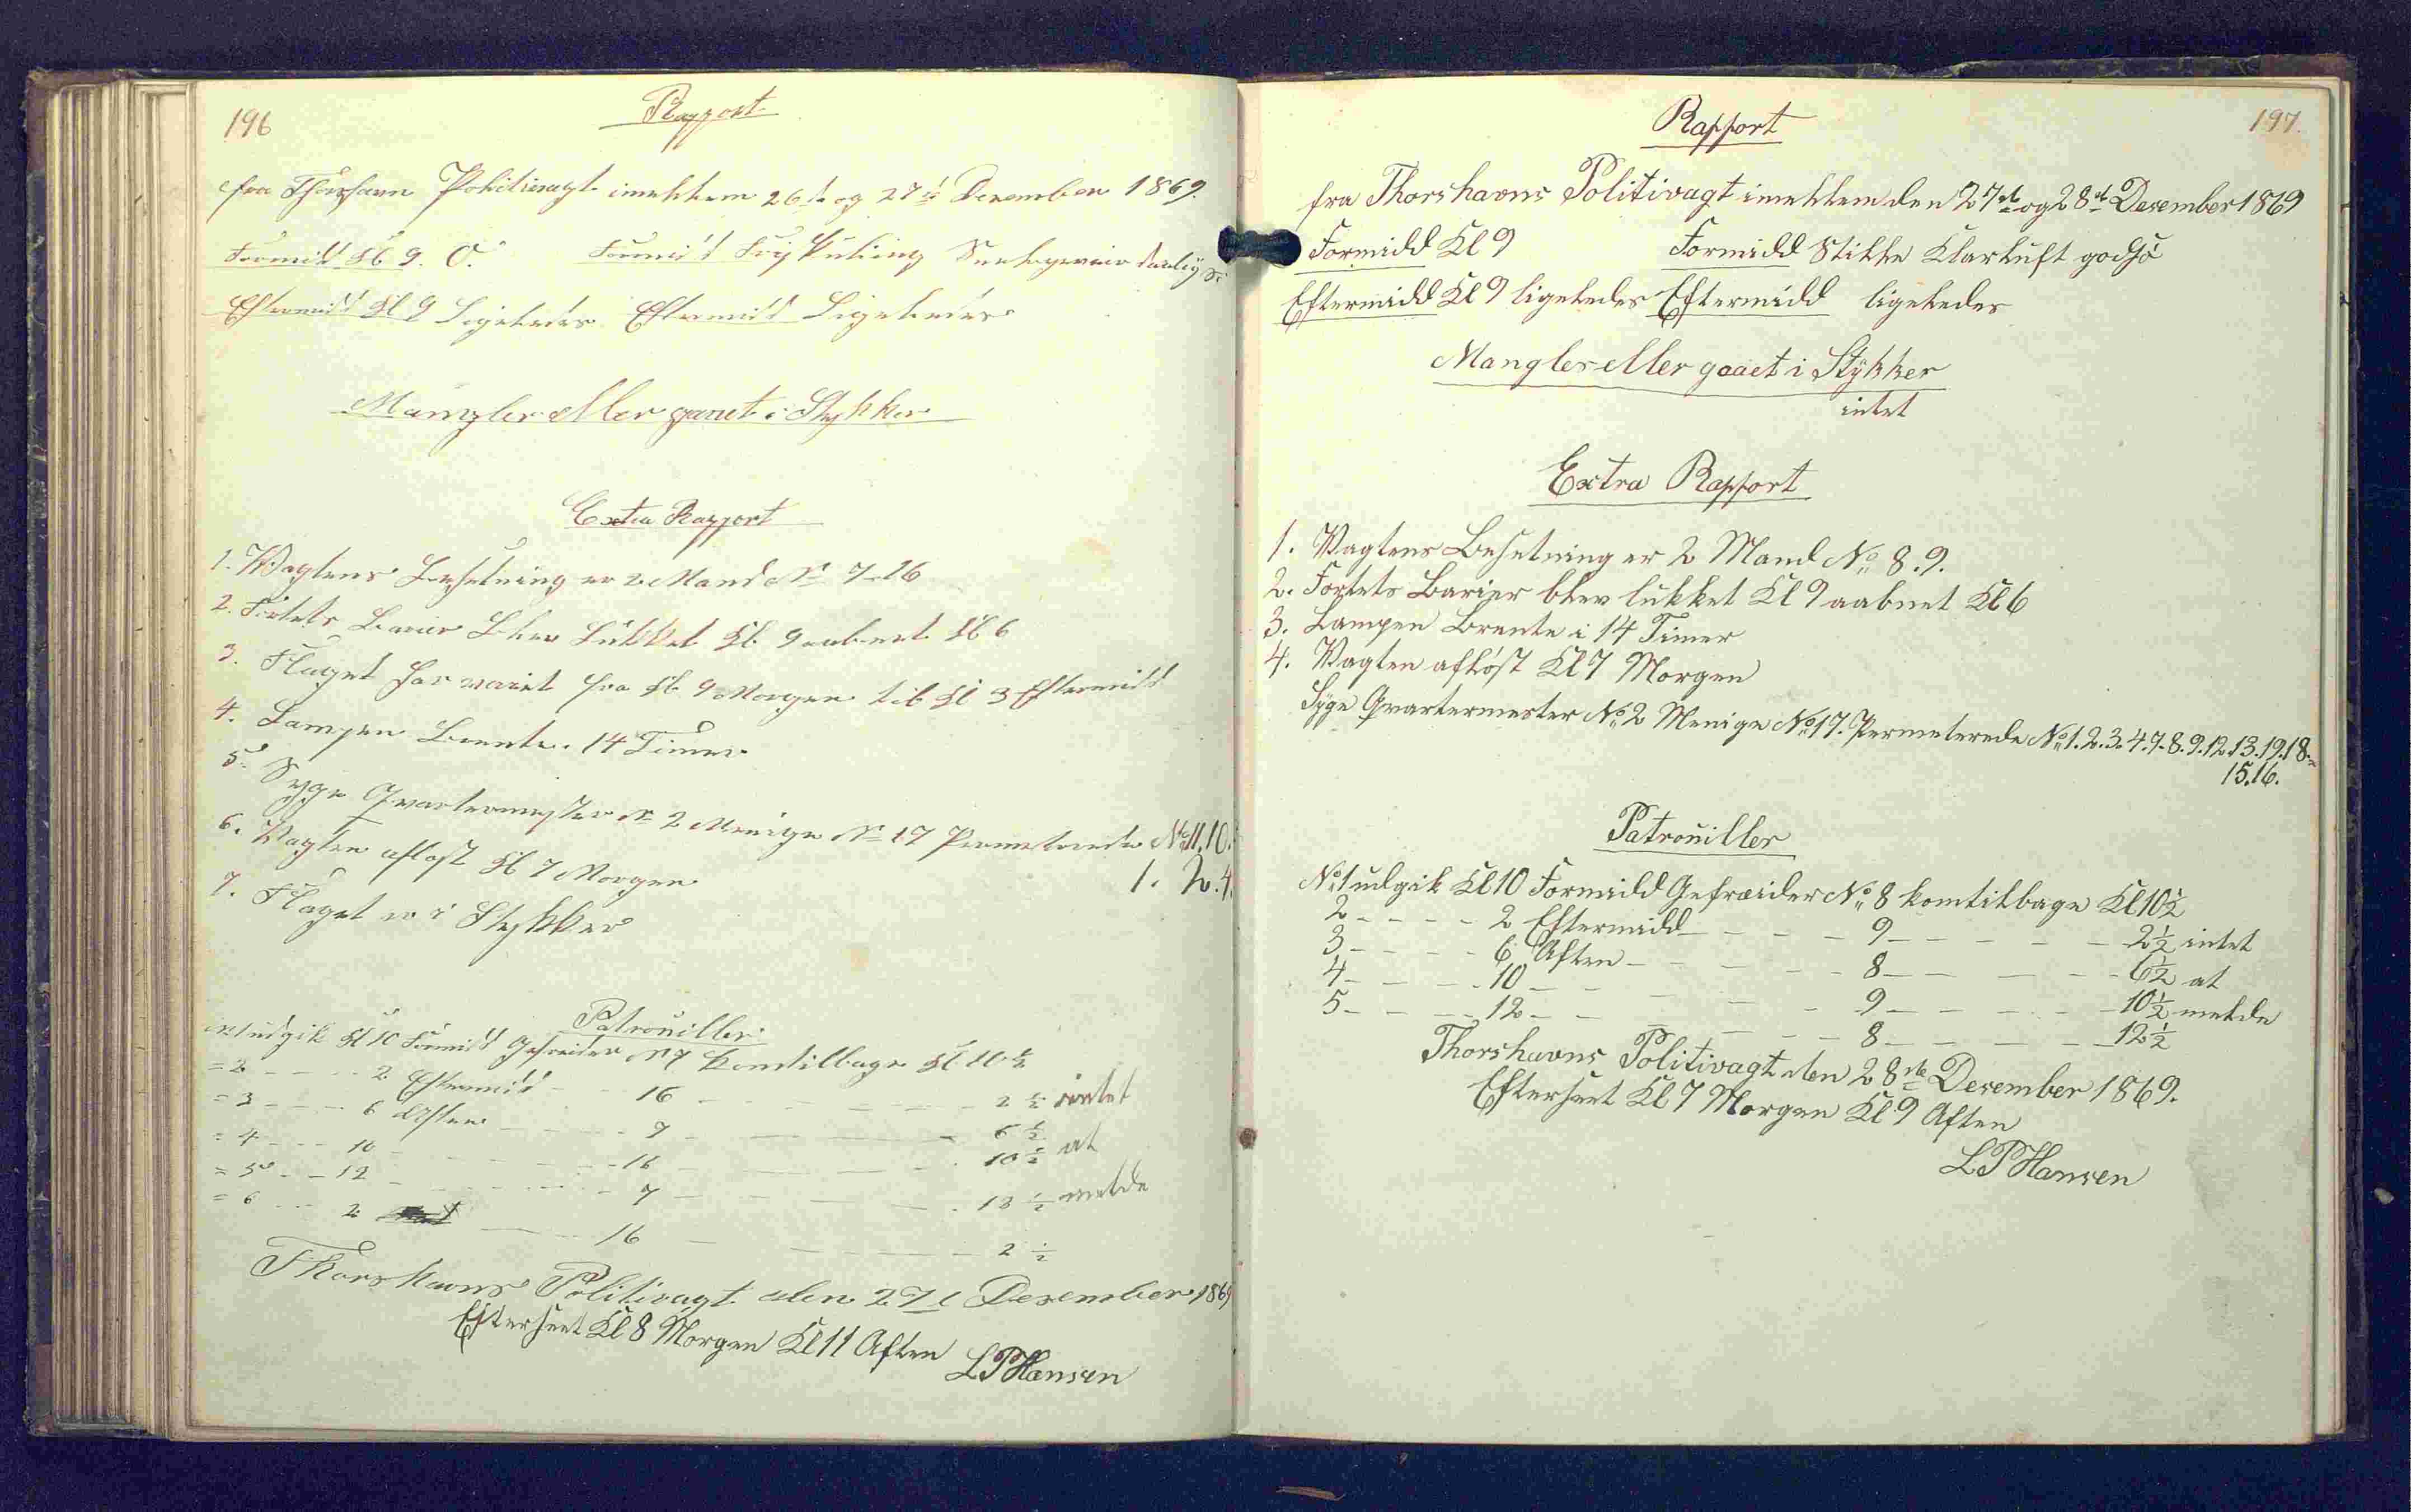 196
Rapport
fra Thorshavn Politivagt imellem 26de og 27de Desember 1869.
Formidd Kl 9. O. Formidd Frisk Kuling
Eftermidd Kl 9 Ligeledes Eftermidd Ligeledes
Mangler eller gaaet i Stykker
Extra Rapport
1. Wagtens Besetning er 2 Mand No 7-16
2. Fortets Barier Blev Lukket Kl. 9 aabnet Kl 6
3. Flaget har vaiet fra Kl. 9 Morgen til Kl 3 Eftermidd
4. Lampen Brente. 14 Timer
5. Syge Qvartermester No 2 Menige No 17 Permeterede No 11.10.
1. 2. 4.
6. Vagten afløst Kl 7 Morgen
7. Flaget er i Stykker
Patrouiller
No 1 udgik Kl 10 Formidd Gefreider No 7 komtilbage Kl 10 ½
= 2 - - - - 2 Eftermidd - - 16 - - - - - 2 ½ intet
= 3 - - - 6 Aften - - - - 7 - - - - - 6 ½
= 4 - - - 10 - - - - - 16 - - - - - 10 ½ at
= 5 - - 12 - - - - - 7 - - - - - 12 ½ melde
= 6 - - - 2 - - - 16 - - - - - 2 ½
Thorshavns Politivagt den 27 Desember 1869
Efterseet Kl 8 Morgen Kl 11 Aften
LPHansen
197.
Rapport
fra Thorshavns Politivagt imellem den 27de og 28de Desember 1869
Formidd Kl 9 Formidd Stille Klarluft godSø
Eftermidd Kl 9 ligeledes Eftermidd ligeledes
Mangler eller gaaet i Stykker
intet
Extra Rapport
1. Vagtens Besetning er 2 Mand No 8.9.
2. Fortets Barier blev lukket Kl 9 aabnet Kl 6
3. Lampen Brente i 14 Timer
4. Vagten afløst Kl 7 Morgen
Syge Qvartermester No 2 Menige No 17. Permeterede No 1.2.3.4.7.8.9.12.13.19.18.
15.16.
Patrouiller
No 1 udgik Kl 10 Formidd Gefraider No 8 komtilbage Kl 10½
2 - - - - 2 Eftermidd - - - - 9 - - - - - 2½ intet
3 - - - - 6 Aften - - - - - 8 - - - - - 6½ at
4 - - - - 10 - - - - - 9 - - - - - 10½ melde
5 - - - - 12 - - - - - 8 - - - - - 12½
Thorshavns Politivagt den 28de Desember 1869.
Efterseet Kl 7 Morgen Kl 9 Aften
LPHansen